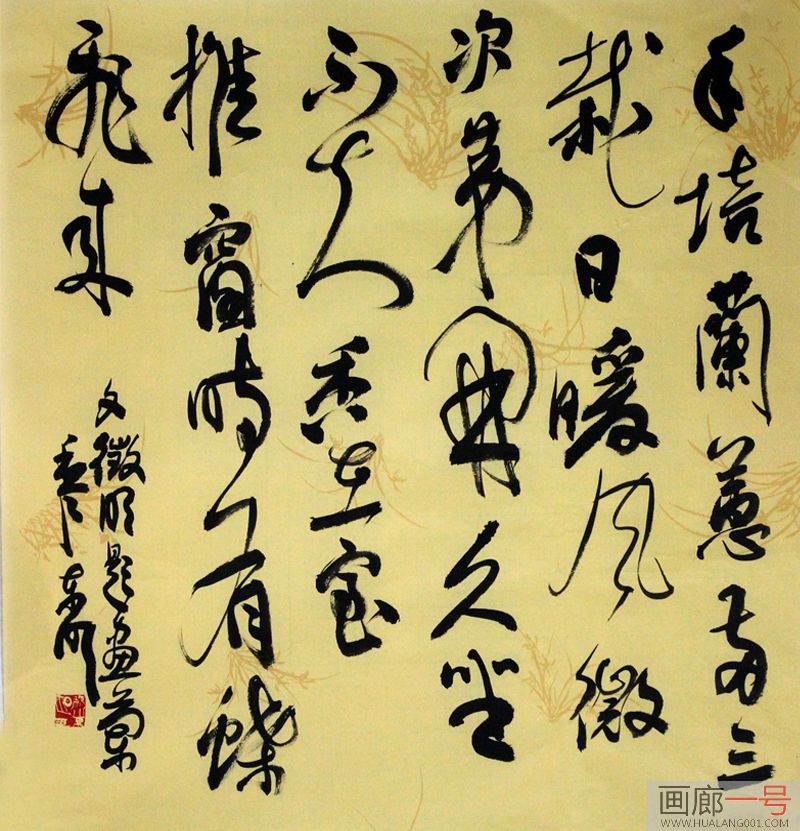 手培蘭蕙兩三
栽日暖風微
次第開久坐
不知香在室
推窗時有蝶
飛來
文徵明題畫蘭
東明
画廊一号
WWW.HUALANG001.COM